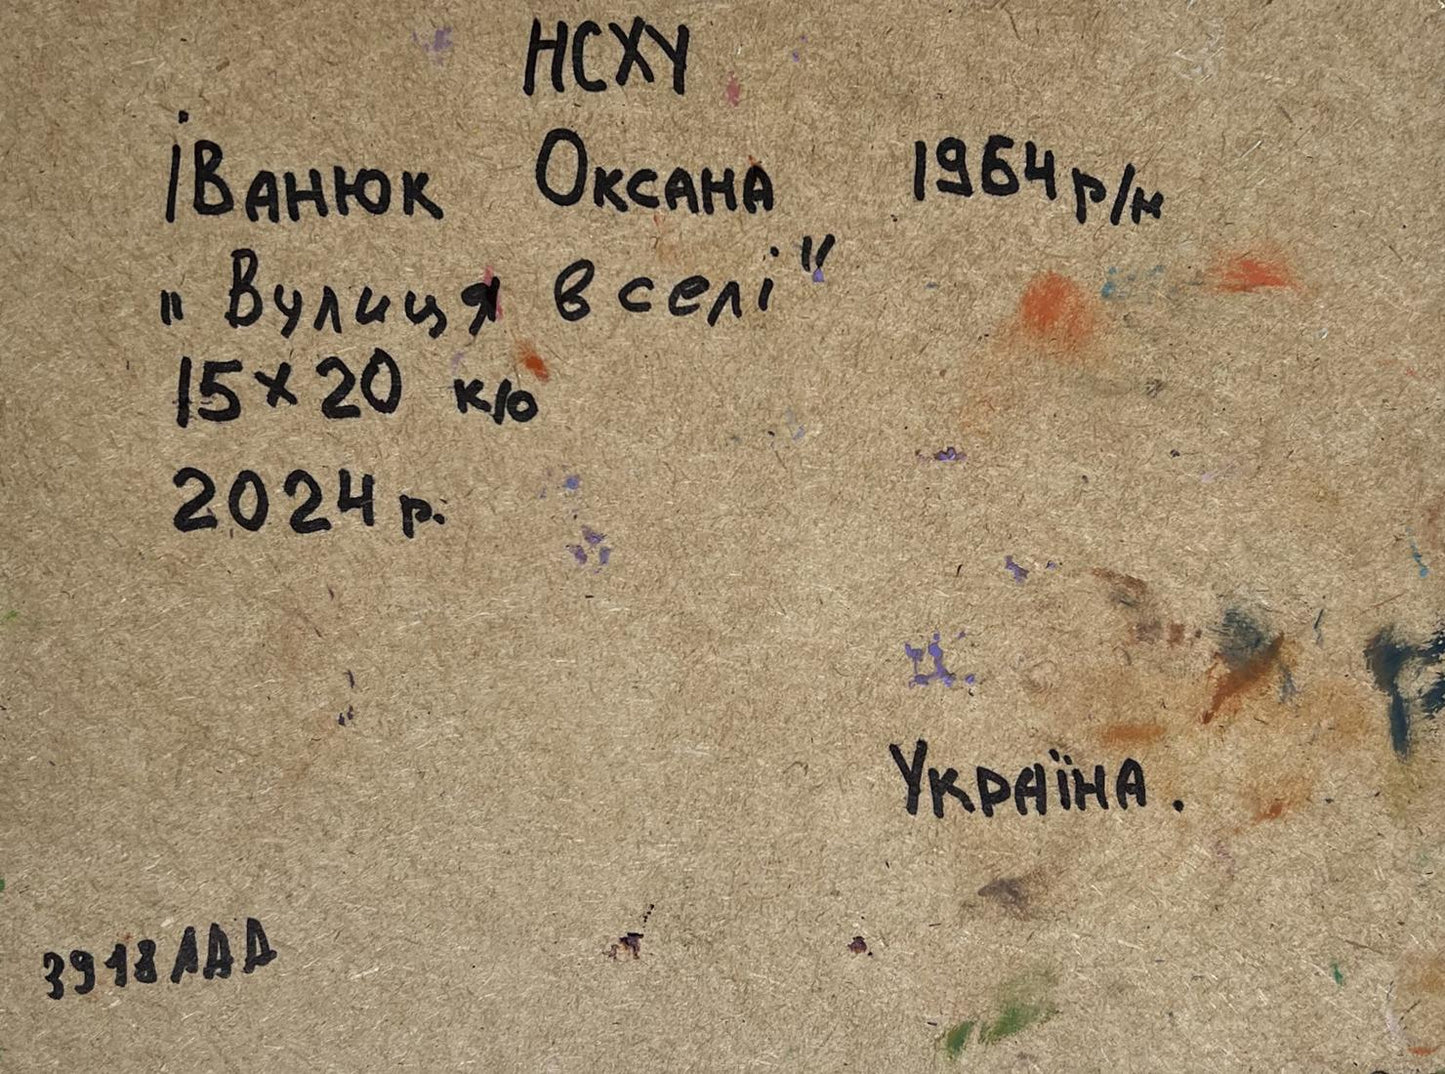 НСХУ
Іванюк Оксана 1964 р/н
„Вулиця в селі"
15×20 к/о
2024 р.
Україна.
3918 ЛДД